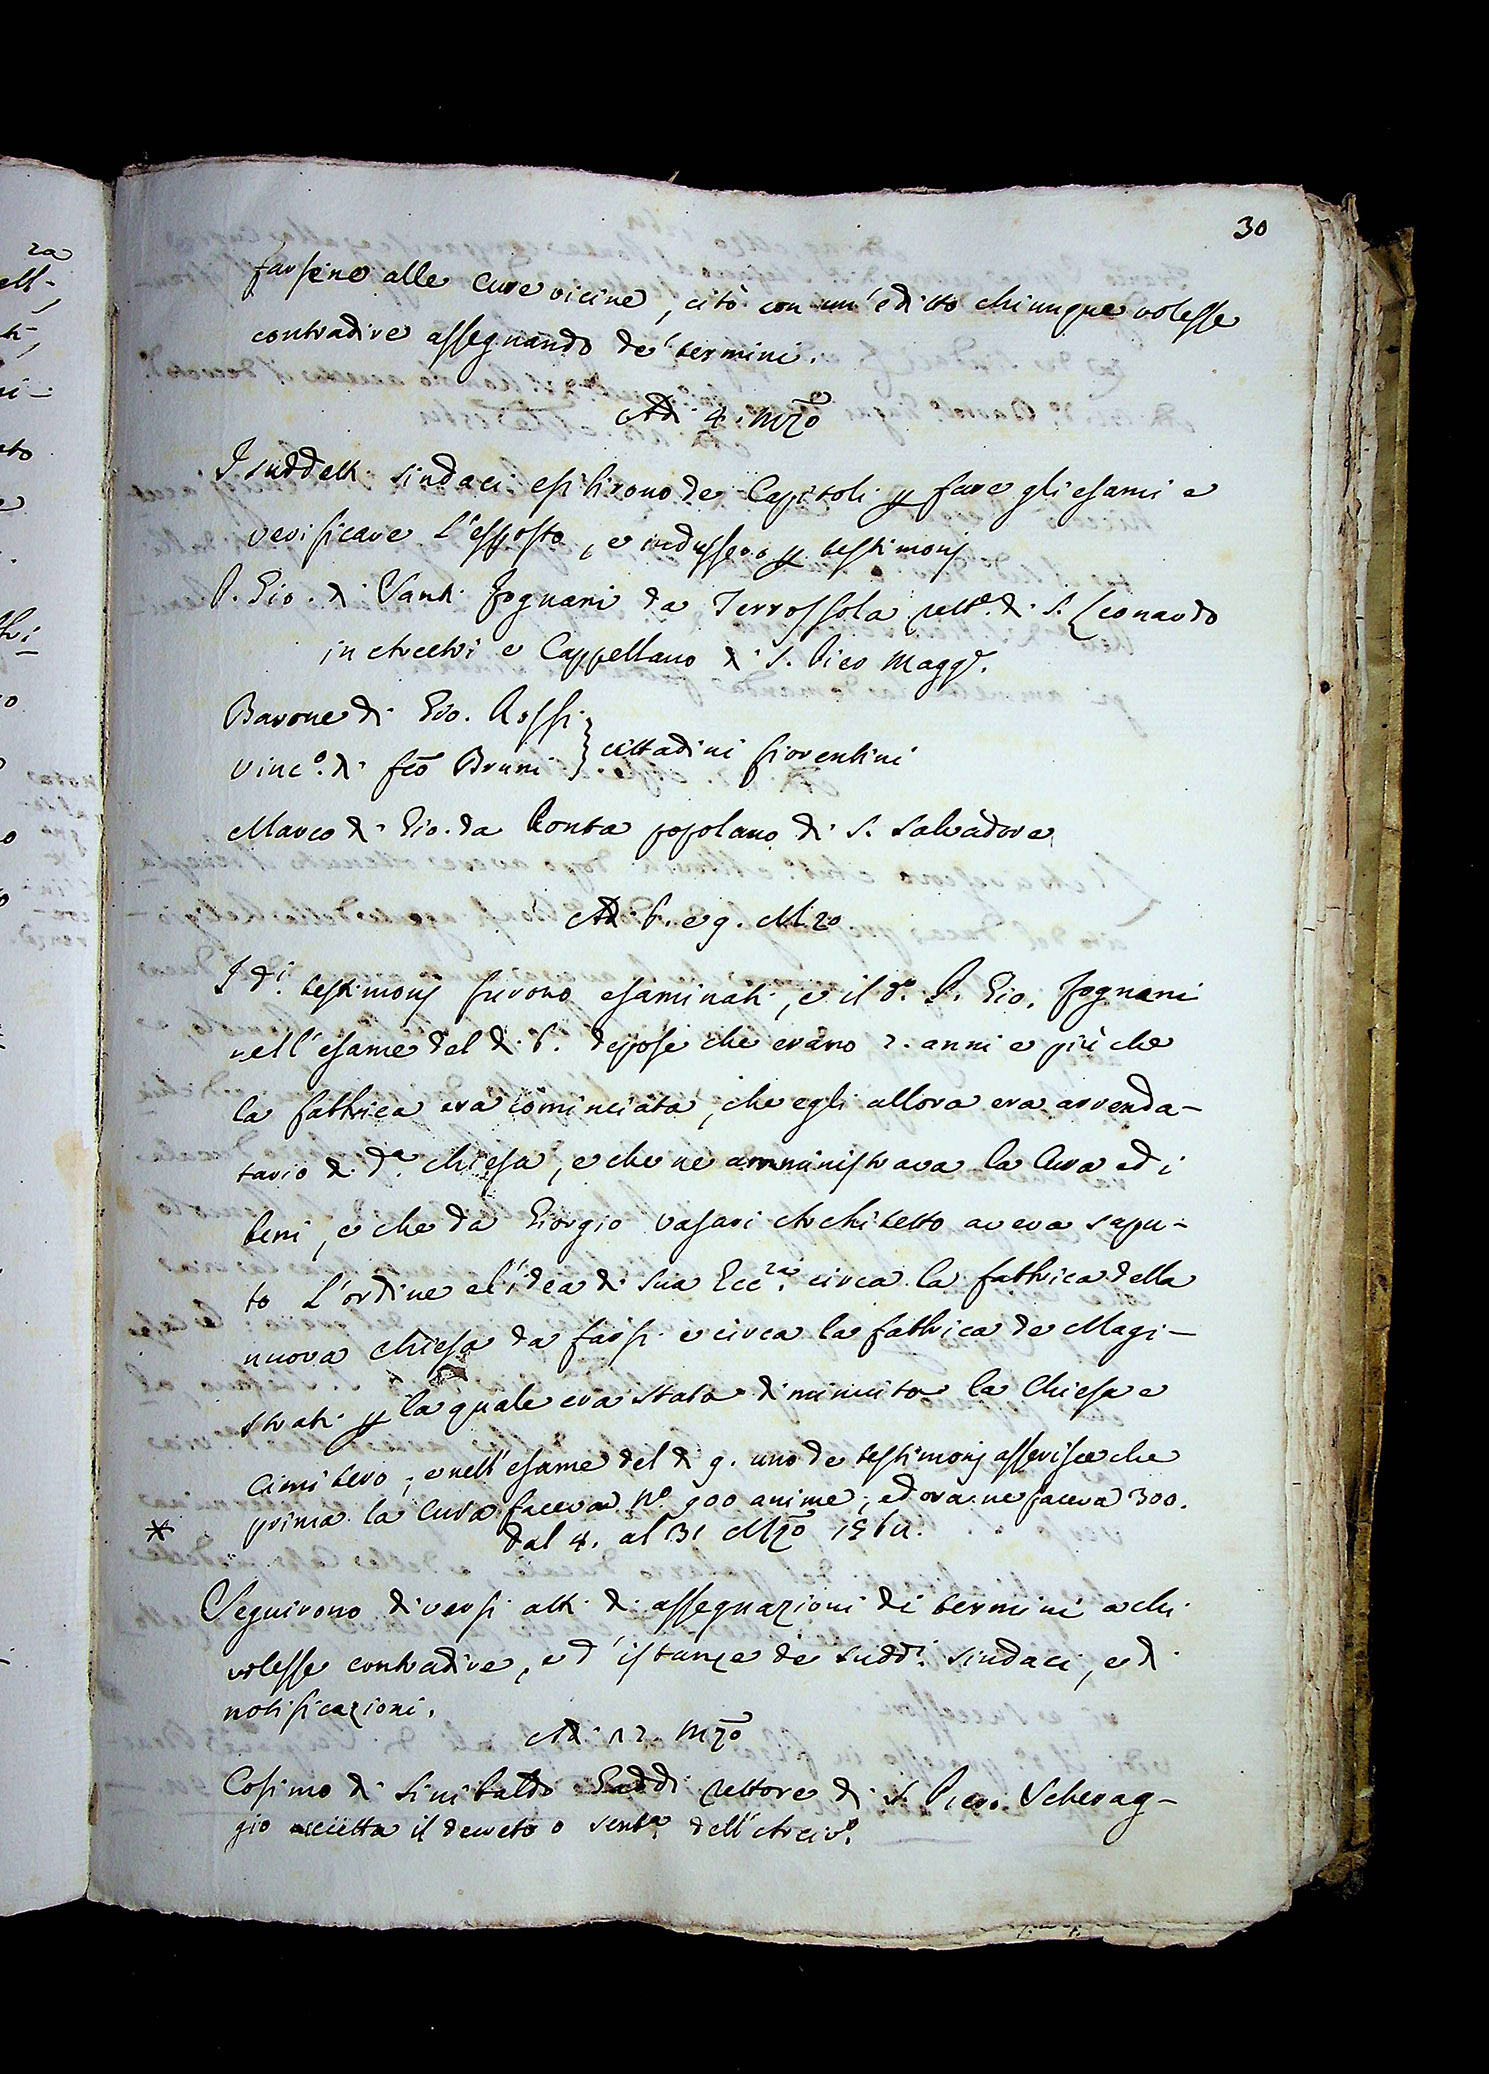 30
farsene alle cure vicine, citò con un'editto chiunque volesse
contradire assegnando de' termini.
Adi 4. Mzo
I suddetti sindaci esibirono de Capitoli p fare gli esami e
verificare l'esposto, e indussero p testimonj
P. Gio. di Santi Fognani da Terrossola rette. di S. Leonardo
in Arcetri e Cappellano di S. Piero Magge.
Barone di Gio. Rossi
Vinco. di Fco Bruni } cittadini fiorentini
Marco di Gio. da Ronta popolano di S. Salvadore
Adi 6. e 9. Mzo
I di. testimonj furono esaminati, e il do. P. Gio. Fognani
nell'esame del di 6. depose che erano 2. anni e più che
la fabbrica era cominciata, che egli allora era arrenda-
tario di da. chiesa, e che ne amministrava la Cura ed i
beni, e che da Giorgio Vasari Architetto aveva sapu-
to l'ordine e l'idea di sua Eccza. circa la fabbrica della
nuova chiesa da farsi e circa la fabbrica de Magi-
strati p la quale era stata diminuita la Chiesa e
Cimitero; e nell'esame del di 9. uno de testimonj asserisce che
prima la Cura faceva No. 900 anime, ed ora ne faceva 300.
* dal 4. al 31 Mzo 1561.
Seguirono diversi atti di assegnazioni di termini a chi
volesse contradire, e d'istanze de suddi. sindaci, e di
notificazioni.
Adi 12 Mzo
Cosimo di Sinibaldo Gaddi rettore di S. Piero Scherag-
gio accetta il decreto o senta. dell'Arcivo.